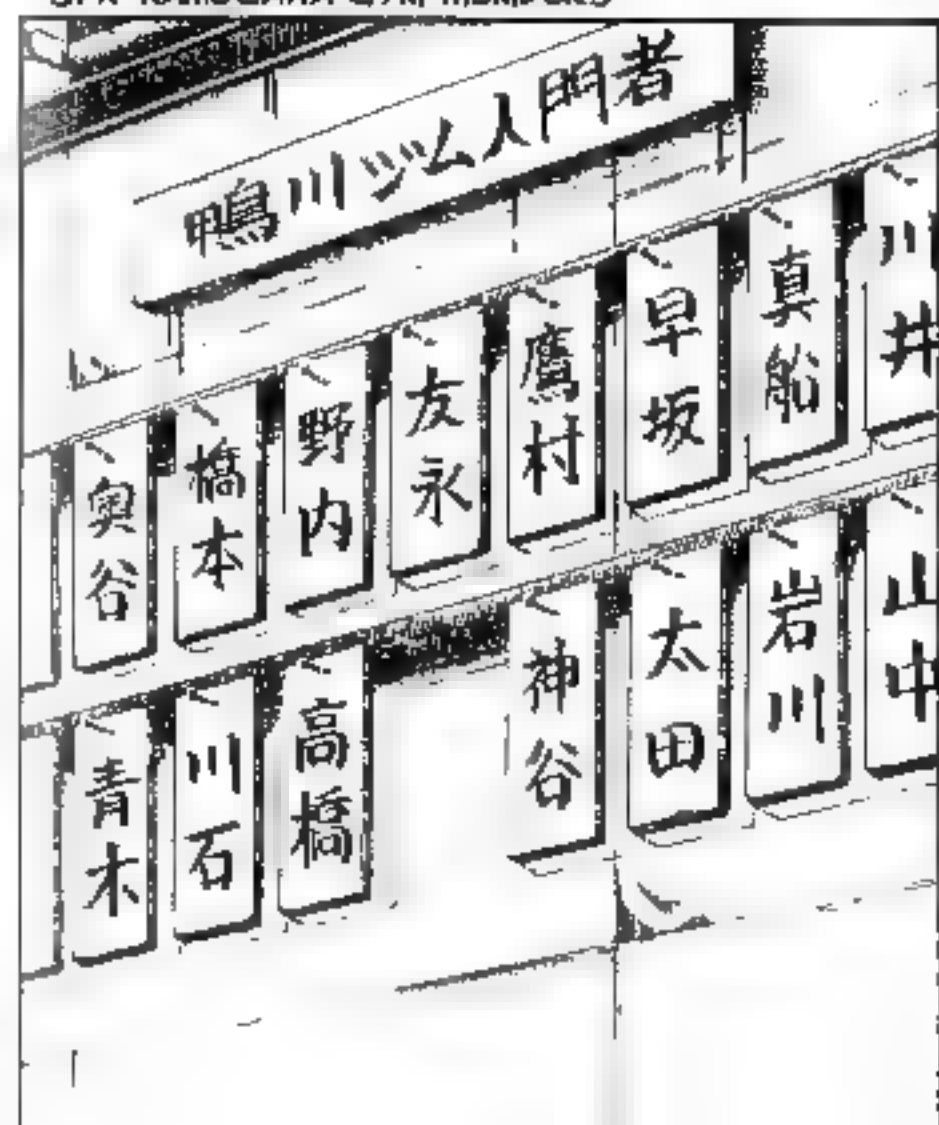 鴨川ジム入門者
川井
真船
早坂
鷹村
友永
野内
橋本
奥谷
山中
岩川
太田
神谷
高橋
川石
青木